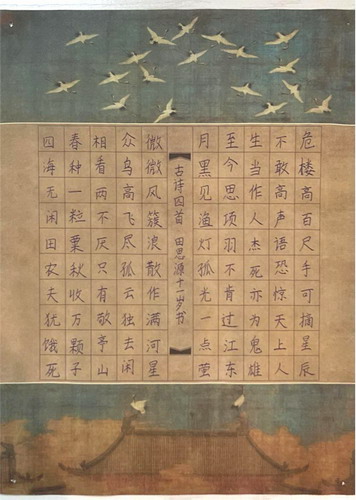 危楼高百尺手可摘星辰
不敢高声语恐惊天上人
生当作人杰死亦为鬼雄
至今思项羽不肯过江东
月黑见渔灯孤光一点萤
【古诗四首 田思源十一岁书】
微微风簇浪散作满河星
众鸟高飞尽孤云独去闲
相看两不厌只有敬亭山
春种一粒粟秋收万颗子
四海无闲田农夫犹饿死